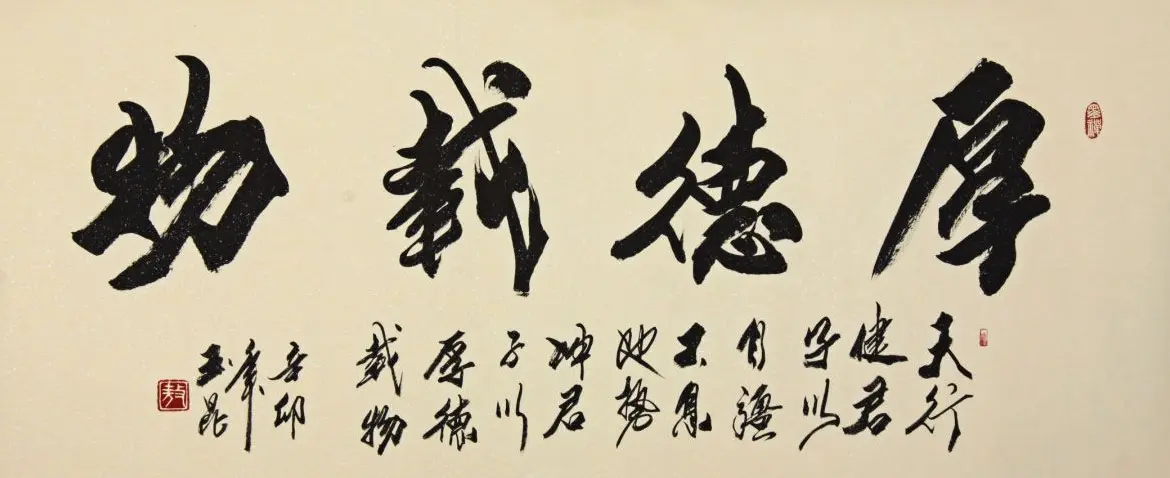 厚德載物
天行
健君
子以
自強
不息
地勢
坤君
子以
厚德
載物
辛卯
年
玉昆
敖